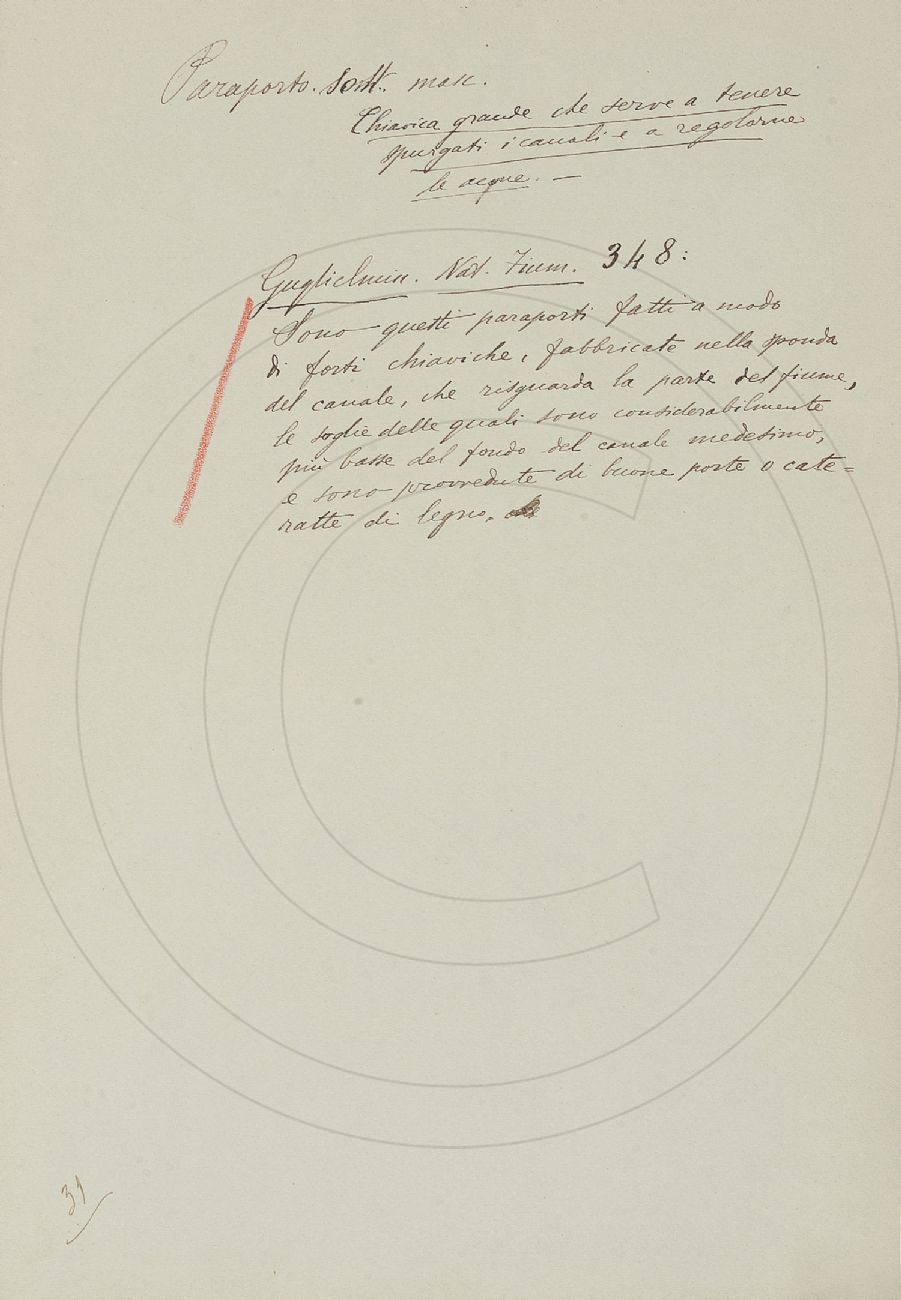 Paraporto. Sost. mas.
Chiavica grande che serve a tenere
spurgati i canali e a regolarne
le acque. —
Guglielmin. Nat. Fium. 348:
Sono questi paraporti fatti a modo
di forti chiaviche, fabbricate nella sponda
del canale, che risguarda la parte del fiume,
le soglie delle quali sono considerabilmente
più basse del fondo del canale medesimo,
e sono provvedute di buone porte o cate=
ratte di legno.
31